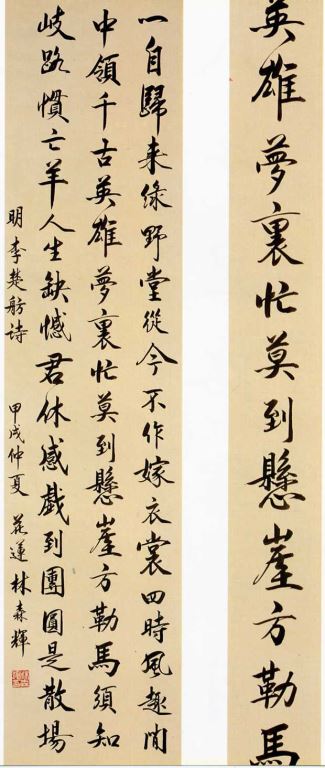 英雄夢裏忙莫到懸崖方勒馬
一自歸来綠野堂從今不作嫁衣裳四時風趣閒
中領千古英雄夢裏忙莫到懸崖方勒馬須知
岐路慣亡羊人生缺憾君休感戲到團圓是散場
明李楚舫詩 甲戌仲夏 花蓮林森輝